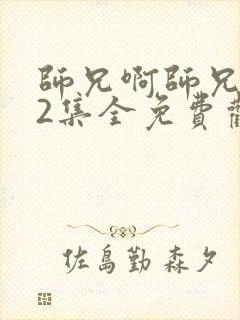 師兄啊師兄
2集全免費觀
佐島勤 森夕